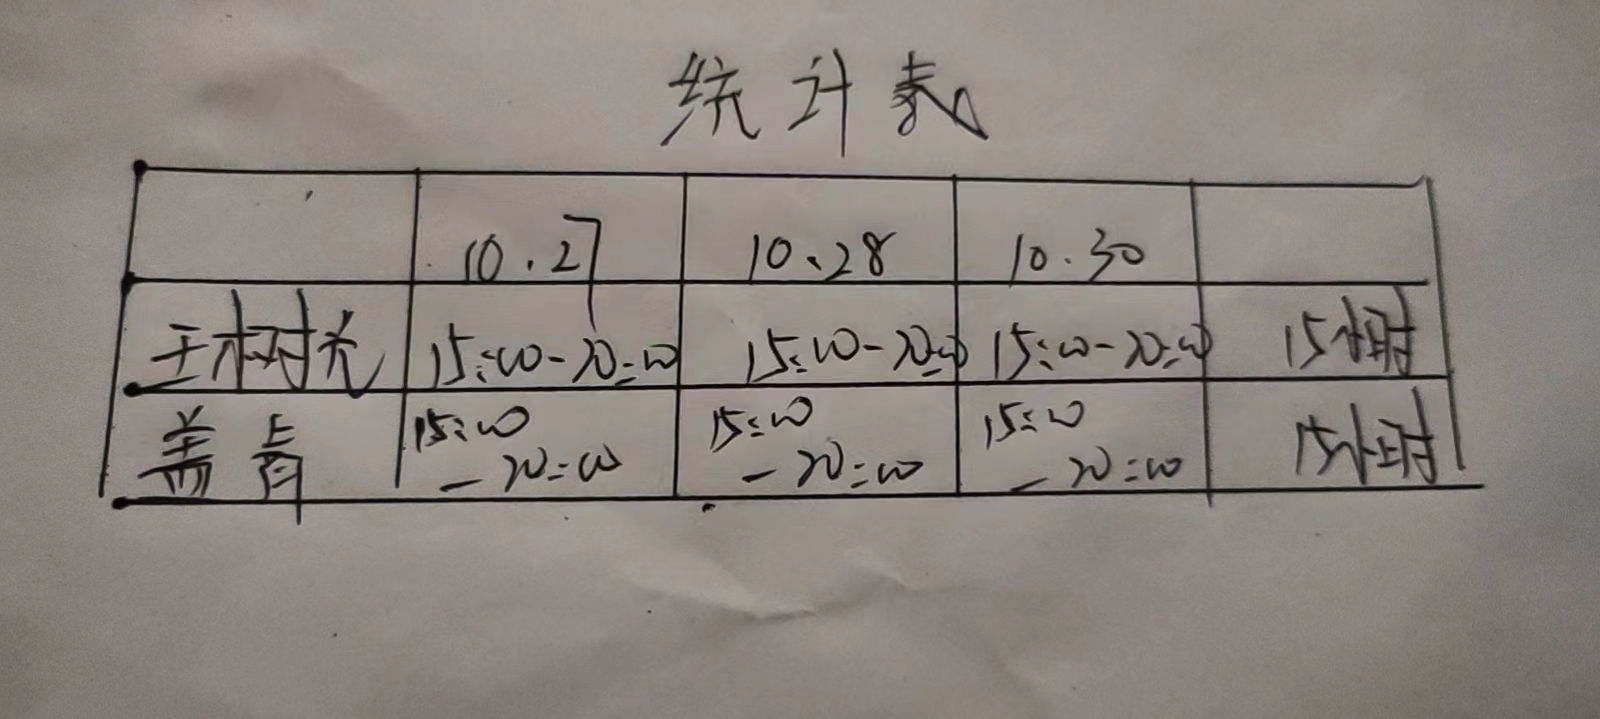 统计表
10.27 10.28 10.30
王树光 15:00-20:00 15:00-20:00 15:00-20:00 15小时
盖青 15:00 15:00 15:00 15小时
-20:00 -20:00 -20:00